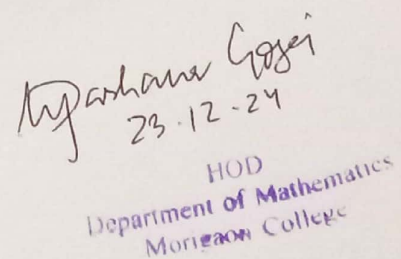 Gogoi
23.12.24
HOD
Department of Mathematics
Morigaon College